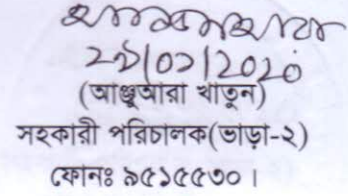 ২৯/০১/2020
(আঞ্জুআরা খাতুন)
সহকারী পরিচালক(ভাড়া-২)
ফোনঃ ৯৫১৫৫৩০।